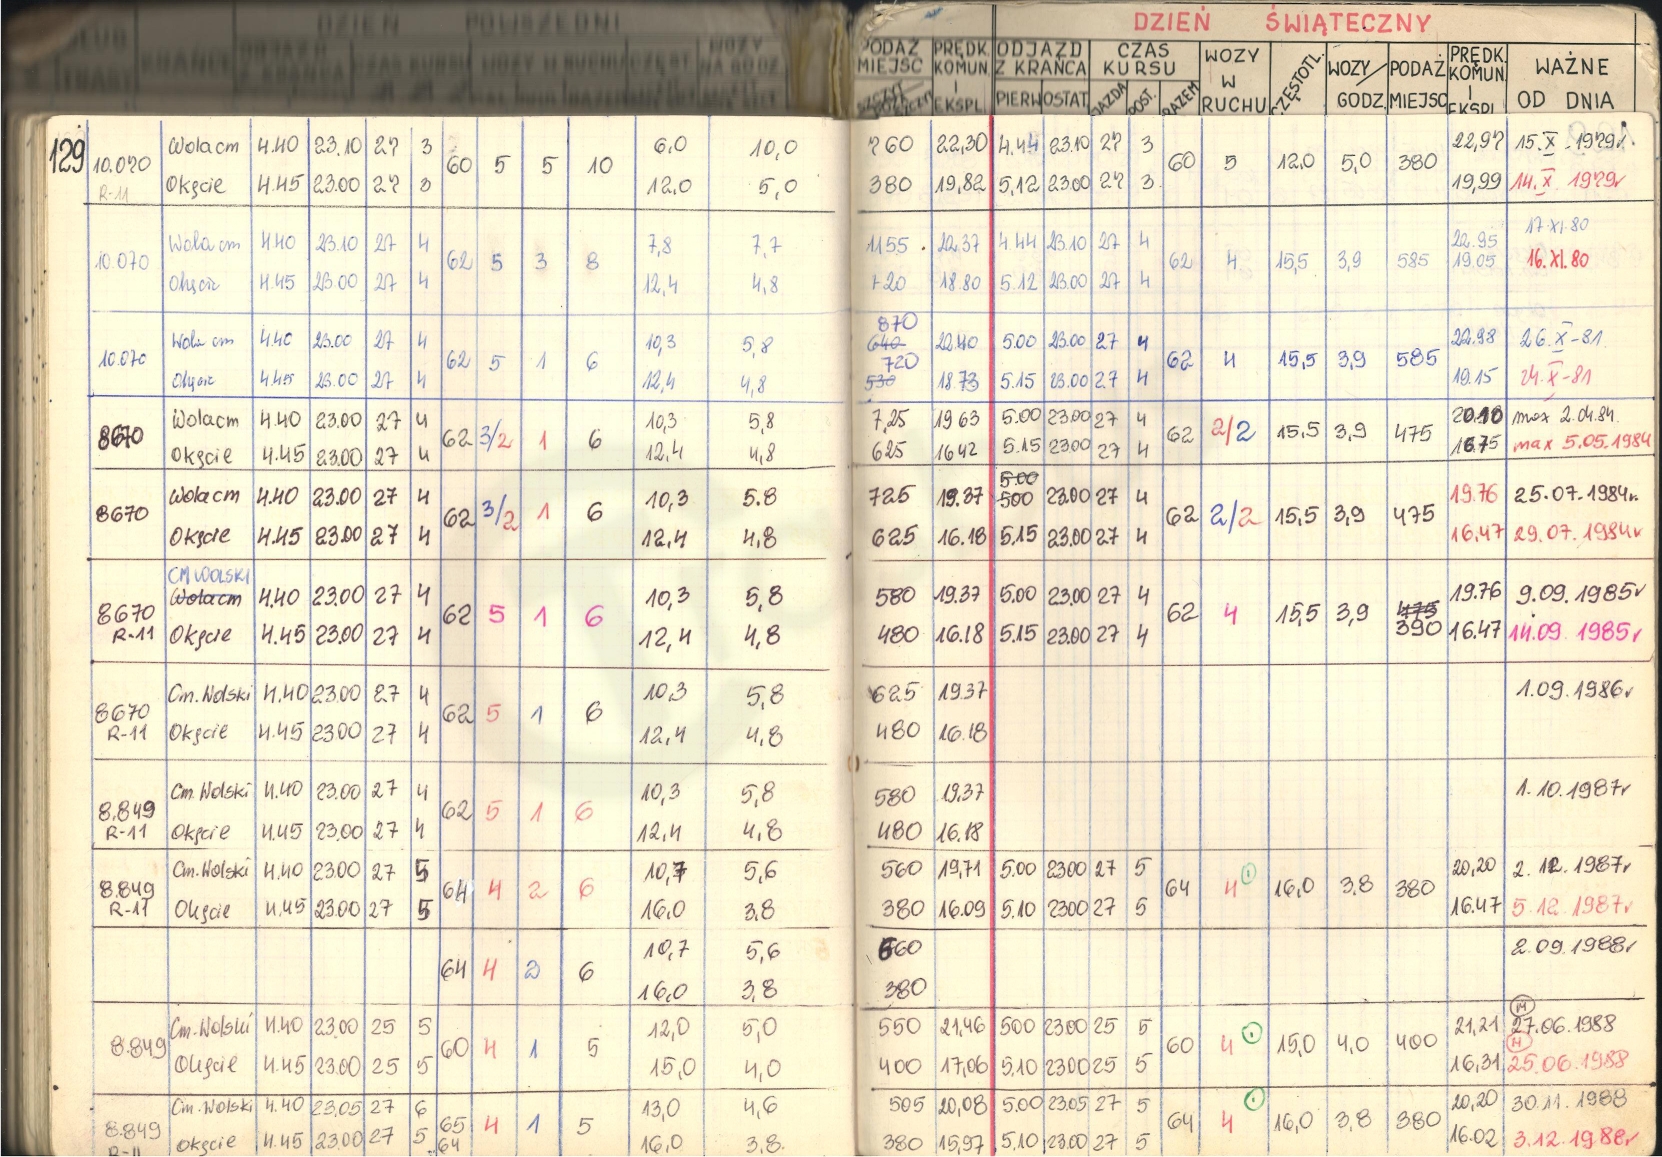 DZIEŃ POWSZEDNI
DZIEŃ ŚWIĄTECZNY
PODAŻ MIEJSC PRĘDK. KOMUN. I EKSPL. ODJAZD Z KRAŃCA CZAS KURSU WOZY W RUCHU CZĘSTOTL. WOZY/GODZ. PODAŻ MIEJSC PRĘDK. KOMUN. I EKSPL. WAŻNE OD DNIA
PIERW OSTAT. JAZDA POST. RAZEM
129 Wola cm 4.40 23.10 27 3 6,0 10,0 760 22,30 4.44 23.10 27 3 22,97 15.X.1979r.
10.070 60 5 5 10 60 5 12,0 5,0 380
R-11 Okęcie 4.45 23.00 27 3 12,0 5,0 380 19,82 5.12 23.00 27 3 19,99 14.X 1979r
Wola cm 4.40 23.10 27 4 7,8 7,7 1155 22.37 4.44 23.10 27 4 22.95 17.XI.80
10.070 62 5 3 8 62 4 15,5 3,9 585 19.05 16.XI.80
Okęcie 4.45 23.00 27 4 12,4 4,8 720 18.80 5.12 23.00 27 4
870
Wola cm 4.40 23.00 27 4 10,3 5,8 640 22.40 5.00 23.00 27 4 22.98 26.X-81
10.070 62 5 1 6 720 62 4 15,5 3,9 585
Okęcie 4.45 23.00 27 4 12,4 4,8 530 18.73 5.15 23.00 27 4 19.15 24.X-81
Wola cm 4.40 23.00 27 4 10,3 5,8 7,25 19 63 5.00 23.00 27 4 20.10 max 2.04.84.
8670 62 3/2 1 6 62 2/2 15,5 3,9 475
Okęcie 4.45 23.00 27 4 12,4 4,8 625 16 42 5.15 23.00 27 4 16.75 max 5.05.1984
5.00
Wola cm 4.40 23.00 27 4 10,3 5.8 725 19.37 500 23.00 27 4 19.76 25.07.1984r.
8670 62 3/2 1 6 62 2/2 15,5 3,9 475
Okęcie 4.45 23.00 27 4 12,4 4,8 625 16.18 5.15 23.00 27 4 16.47 29.07.1984r
CM WOLSKI
Wola cm 4.40 23.00 27 4 10,3 5,8 580 19.37 5.00 23.00 27 4 19.76 9.09.1985r
8670 62 5 1 6 62 4 15,5 3,9 475
R-11 Okęcie 4.45 23.00 27 4 12,4 4,8 480 16.18 5.15 23.00 27 4 390 16.47 14.09.1985r
Cm. Wolski 4.40 23.00 27 4 10,3 5,8 625 19.37 1.09.1986r
8670 62 5 1 6
R-11 Okęcie 4.45 23.00 27 4 12,4 4,8 480 16.18
Cm. Wolski 4.40 23.00 27 4 10,3 5,8 580 19.37 1.10.1987r
8.849 62 5 1 6
R-11 Okęcie 4.45 23.00 27 4 12,4 4,8 480 16.18
Cm. Wolski 4.40 23.00 27 5 10,7 5,6 560 19,71 5.00 23.00 27 5 20,20 2.12.1987r
8.849 64 4 2 6 64 4 1 16,0 3.8 380
R-11 Okęcie 4.45 23.00 27 5 16.0 3.8 380 16.09 5.10 23.00 27 5 16.47 5.12.1987r
10,7 5,6 560 2.09.1988r
64 4 2 6
16,0 3,8 380
M
Cm. Wolski 4.40 23.00 25 5 12,0 5,0 550 21,46 500 23.00 25 5 21,21 27.06.1988
8.849 60 4 1 5 60 4 1 15,0 4,0 400 M
Okęcie 4.45 23.00 25 5 15,0 4,0 400 17,06 5.10 23.00 25 5 16,31 25.06.1988
Cm. Wolski 4.40 23,05 27 6 13,0 4,6 505 20,08 5.00 23.05 27 5 20,20 30.11.1988
8.849 65 4 1 5 64 4 1 16,0 3,8 380
R-11 Okęcie 4.45 23.00 27 5 64 16,0 3.8. 380 15,97 5.10 23.00 27 5 16.02 3.12.1988r